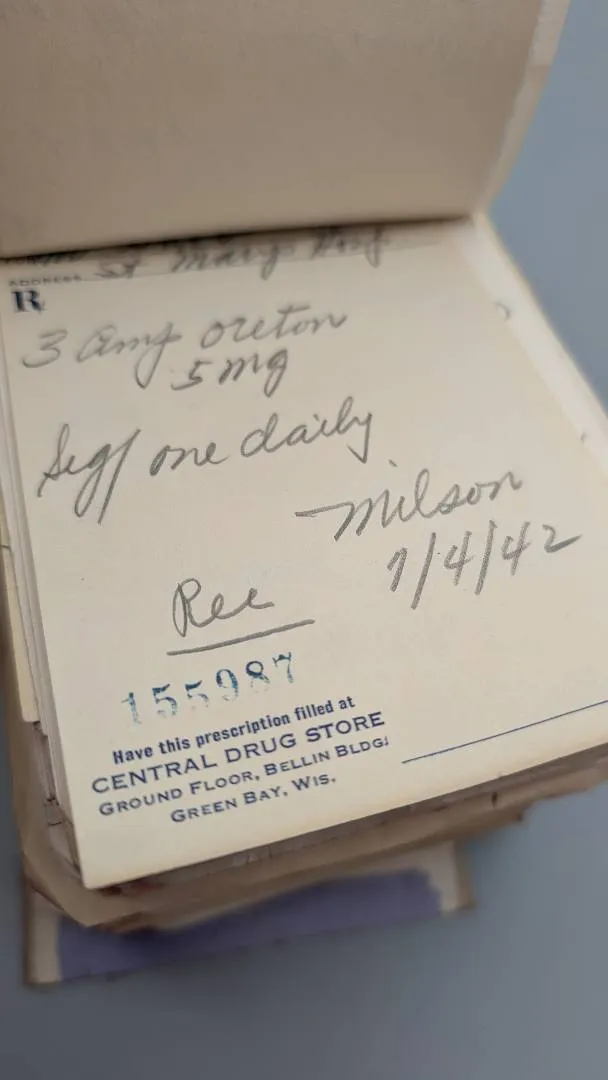 ADDRESS St Marys Hosp
Rx
3 Amp Oreton
5 mg
Sig/ one daily
Milson
1/4/42
Rec
155987
Have this prescription filled at
CENTRAL DRUG STORE
GROUND FLOOR, BELLIN BLDG.
GREEN BAY, WIS.